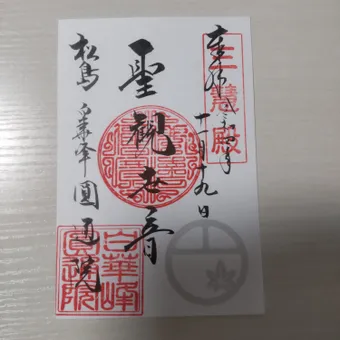 三慧殿
奉拝
十一月十九日
聖観世音
松島 白華峰 圓通院
白華峰
圓通院